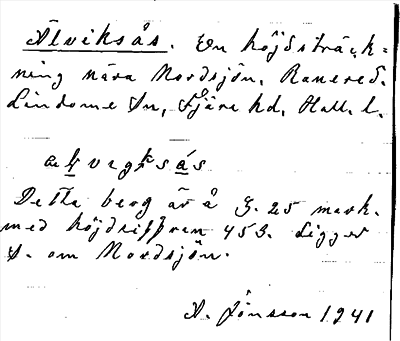 Älviksås. En höjdsträck-
ning nära Nordsjön, Ranered.
Lindome Sn, Fjäre hd, Hall. l.
Detta berg är å G. 25 mark.
med höjdsiffran 453. Ligger
S. om Nordsjön.
A. Jönsson 1941